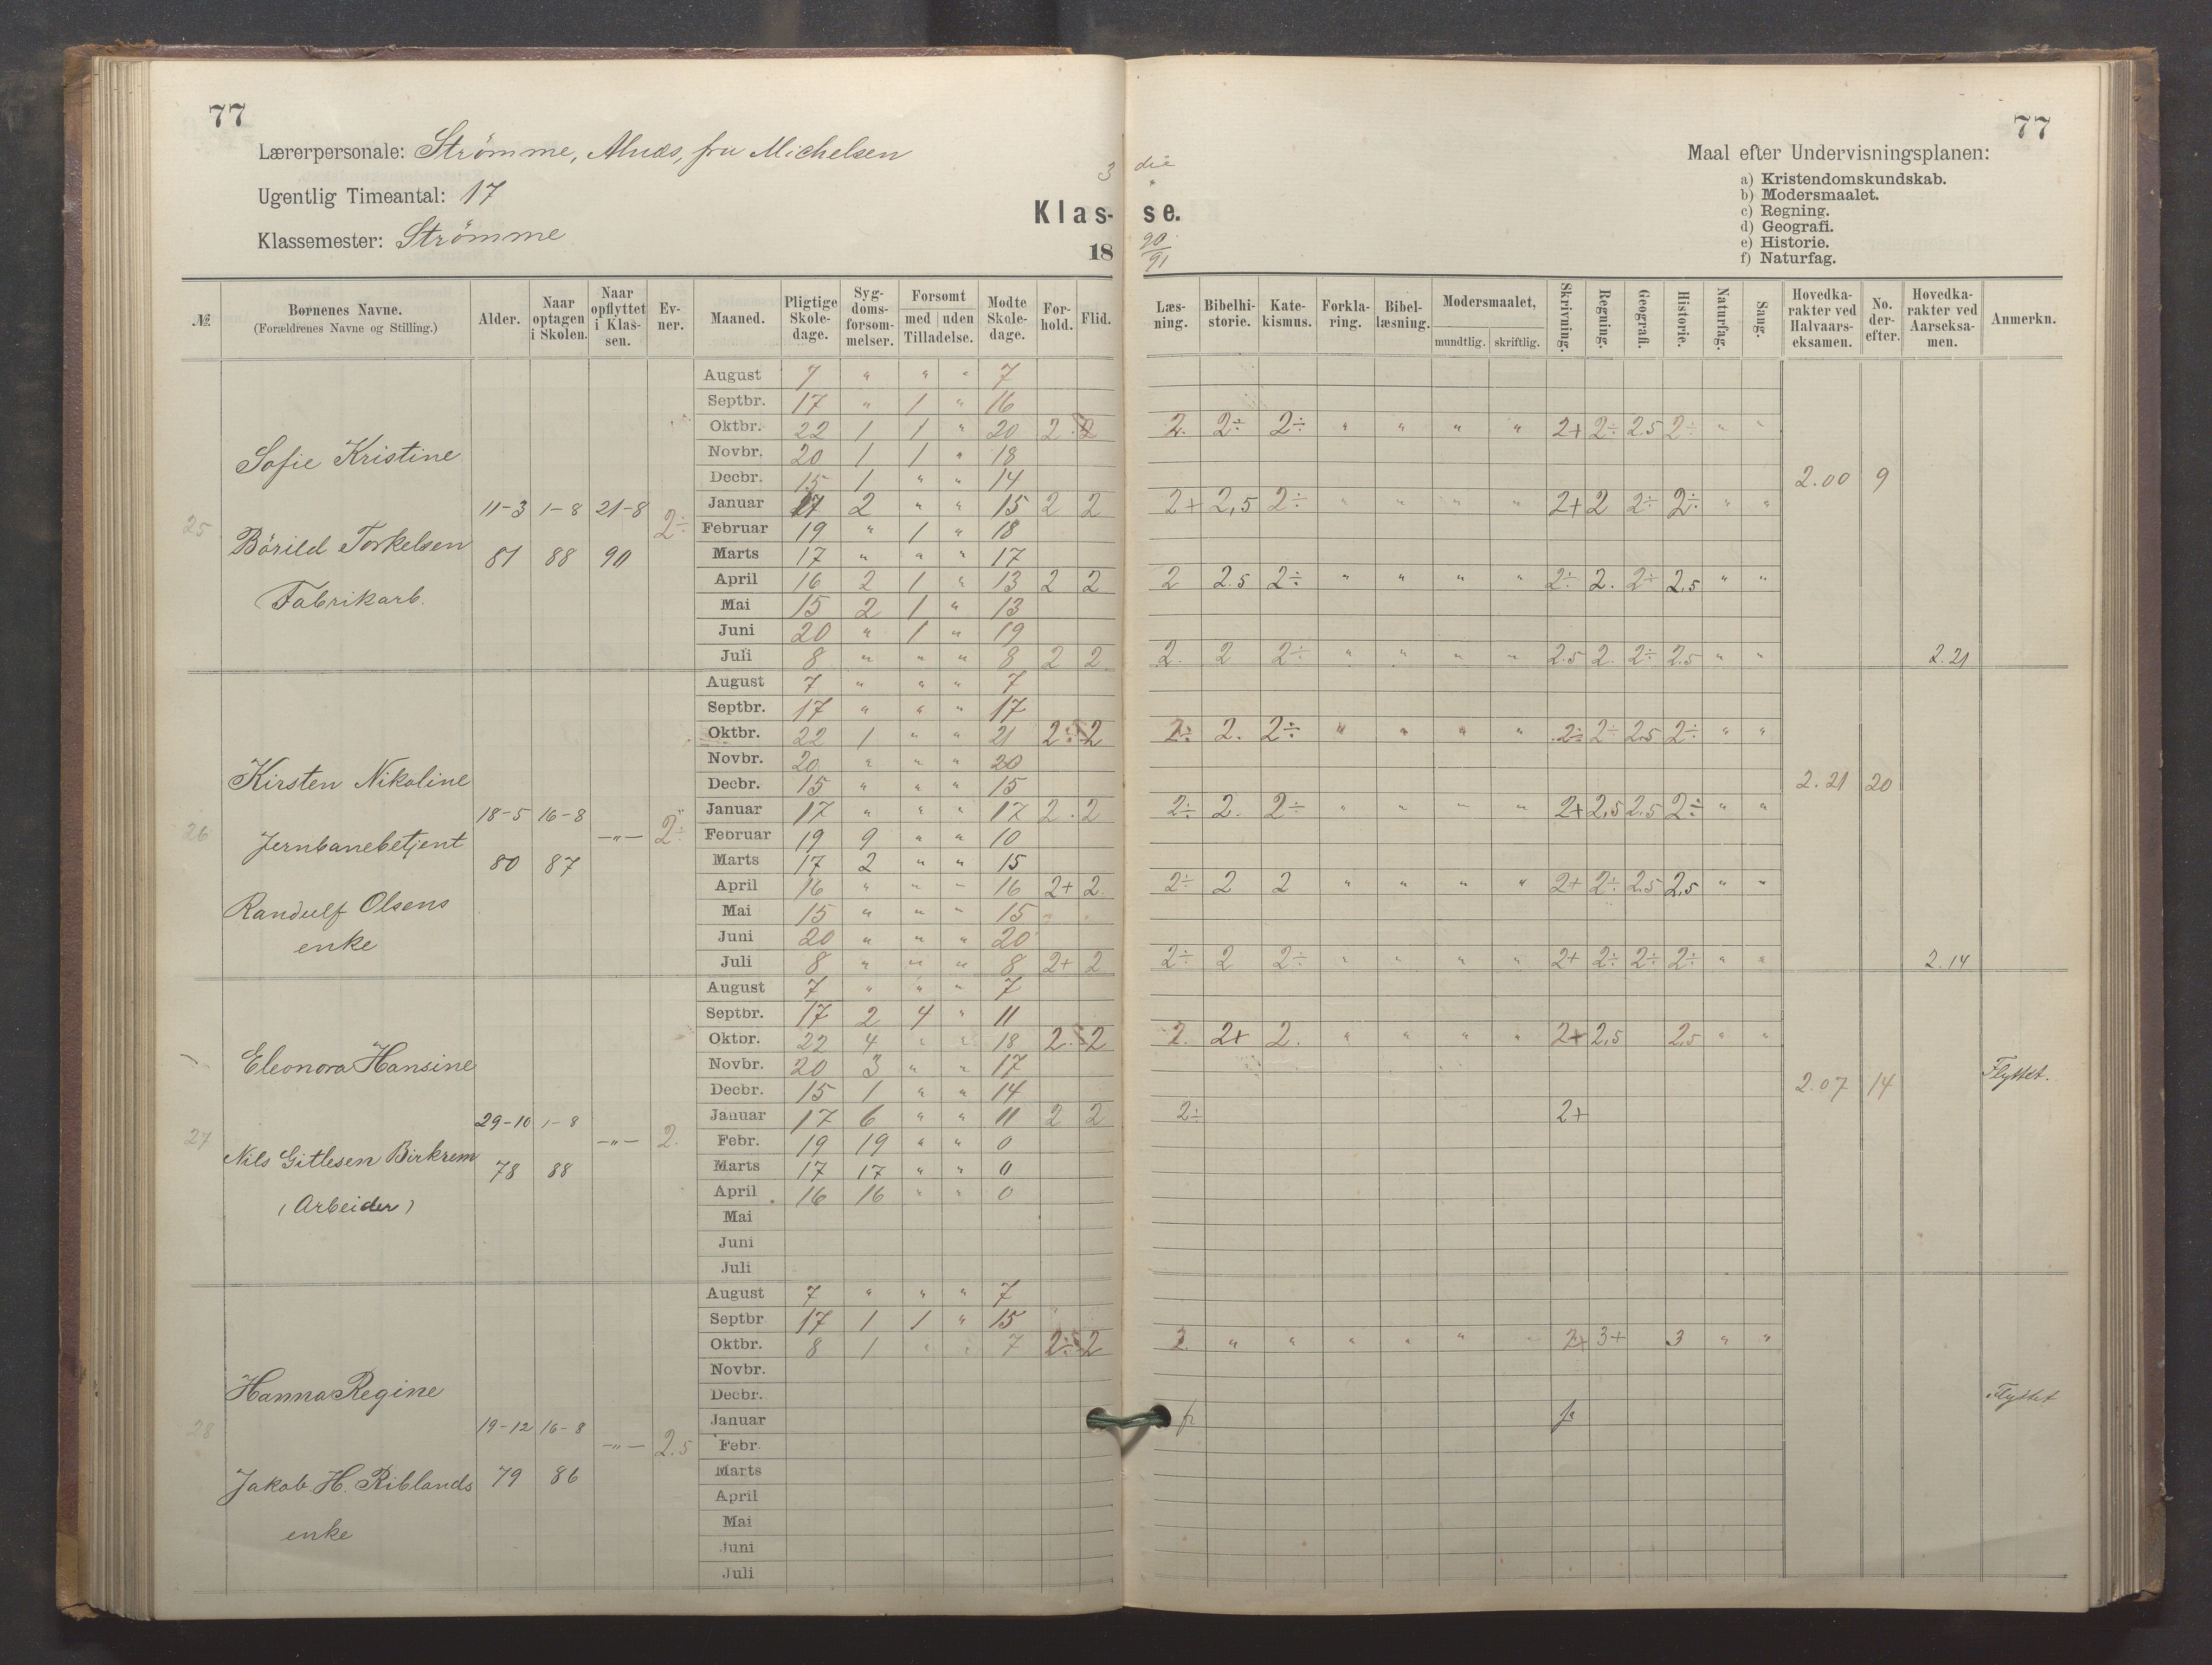 77
Lærerpersonale: Strömme, fru Michelsen
Ugentlig Timeantal: 17
Klassemester: Strömme
3 die
Klas- se.
18 90/91
77
Maal efter Undervisningsplanen:
a) Kristendomskundskab.
b) Modersmaalet.
c) Regning.
d) Geografi.
e) Historie.
f) Naturfag.
№ | Børnenes Navne. (Forældrenes Navne og Stilling.) | Alder. | Naar optagen i Skolen. | Naar opflyttet i Klassen. | Evner. | Maaned. | Pligtige Skoledage. | Sygdomsforsømmelser. | Forsømt med uden Tilladelse. | Mødte Skoledage. | Forhold. | Flid. | Læsning. | Bibelhistorie. | Katekismus. | Forklaring. | Bibellæsning. | Modersmaalet, mundtlig. skriftlig. | Skrivning. | Regning. | Geografi. | Historie. | Naturfag. | Sang. | Hovedkarakter ved Halvaarseksamen. | No. derefter. | Hovedkarakter ved Aarseksamen. | Anmerkn.
25
Sofie Kristine
Börild Torkelsen
Fabrikarb.
11-3 81 | 1-8 88 | 21-8 90 | 2÷
August 7 " " " 7
Septbr. 17 " 1 " 16
Oktbr. 22 1 1 " 20 2. 2 | 2. 2÷ 2÷ " " " " 2+ 2÷ 2.5 2÷ " "
Novbr. 20 1 1 " 18
Decbr. 15 1 " " 14
2.00 9
Januar 17 2 " " 15 2 2 | 2+ 2,5 2÷ " " " " 2+ 2 2÷ 2÷ " "
Februar 19 " 1 " 18
Marts 17 " " " 17
April 16 2 1 " 13 2 2 | 2 2.5 2÷ " " " " 2÷ 2. 2÷ 2,5 " "
Mai 15 2 1 " 13
Juni 20 " 1 " 19
Juli 8 " " " 8 2 2 | 2. 2 2÷ " " " " 2.5 2. 2÷ 2.5 " " 2.21
26
Kirsten Nikoline
Jernbanebetjent
Randulf Olsens
enke
18-5 80 | 16-8 87 | —"— | 2÷
August 7 " " " 7
Septbr. 17 " " " 17
Oktbr. 22 1 " " 21 2÷ 2 | 2÷ 2. 2÷ " " " " 2÷ 2÷ 2.5 2÷ " "
Novbr. 20 " " " 20
Decbr. 15 " " " 15
2.21 20
Januar 17 " " " 17 2. 2 | 2÷ 2. 2÷ " " " " 2+ 2,5 2.5 2÷ " "
Februar 19 9 " " 10
Marts 17 2 " " 15
April 16 " " " 16 2+ 2. | 2÷ 2 2 " " " " 2+ 2÷ 2.5 2,5 " "
Mai 15 " " " 15
Juni 20 " " " 20
Juli 8 " " " 8 2+ 2 | 2÷ 2 2÷ " " " " 2+ 2÷ 2÷ 2÷ " " 2.14
27
Eleonora Hansine
Nils Gitlesen Birkrem
(Arbeider)
29-10 78 | 1-8 88 | —"— | 2.
August 7 " " " 7
Septbr. 17 2 4 " 11
Oktbr. 22 4 " " 18 2. 2 | 2. 2+ 2. " " " " 2+ 2,5 2,5 " "
Novbr. 20 3 " " 17
Decbr. 15 1 " " 14
2.07 14 Flyttet.
Januar 17 6 " " 11 2 2 | 2÷ 2+
Febr. 19 19 " " 0
Marts 17 17 " " 0
April 16 16 " " 0
Mai
Juni
Juli
28
Hanna Regine
Jakob H. Riblands
enke
19-12 79 | 16-8 86 | —"— | 2.5
August 7 " " " 7
Septbr 17 1 1 " 15
Oktbr. 8 1 " " 7 2÷ 2 | 2. " " " " " 2+ 3+ 3 " "
Novbr.
Decbr.
Flyttet
Januar
Febr.
Marts
April
Mai
Juni
Juli